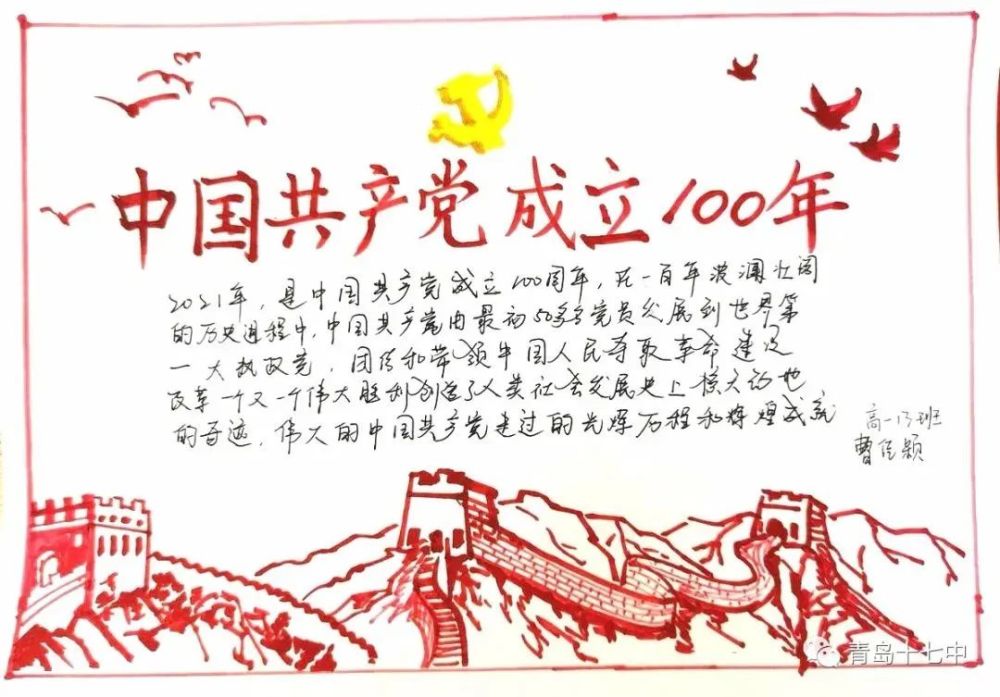 中国共产党成立100年
2021年，是中国共产党成立100周年，在一百年波澜壮阔
的历史进程中，中国共产党由最初50多名党员发展到世界第
一大执政党，团结和带领中国人民夺取革命建设
改革一个又一个伟大胜利创造了人类社会发展史上惊天动地
的奇迹，伟大的中国共产党走过的光辉历程和辉煌成就
高一13班
曹佳颖
青岛十七中